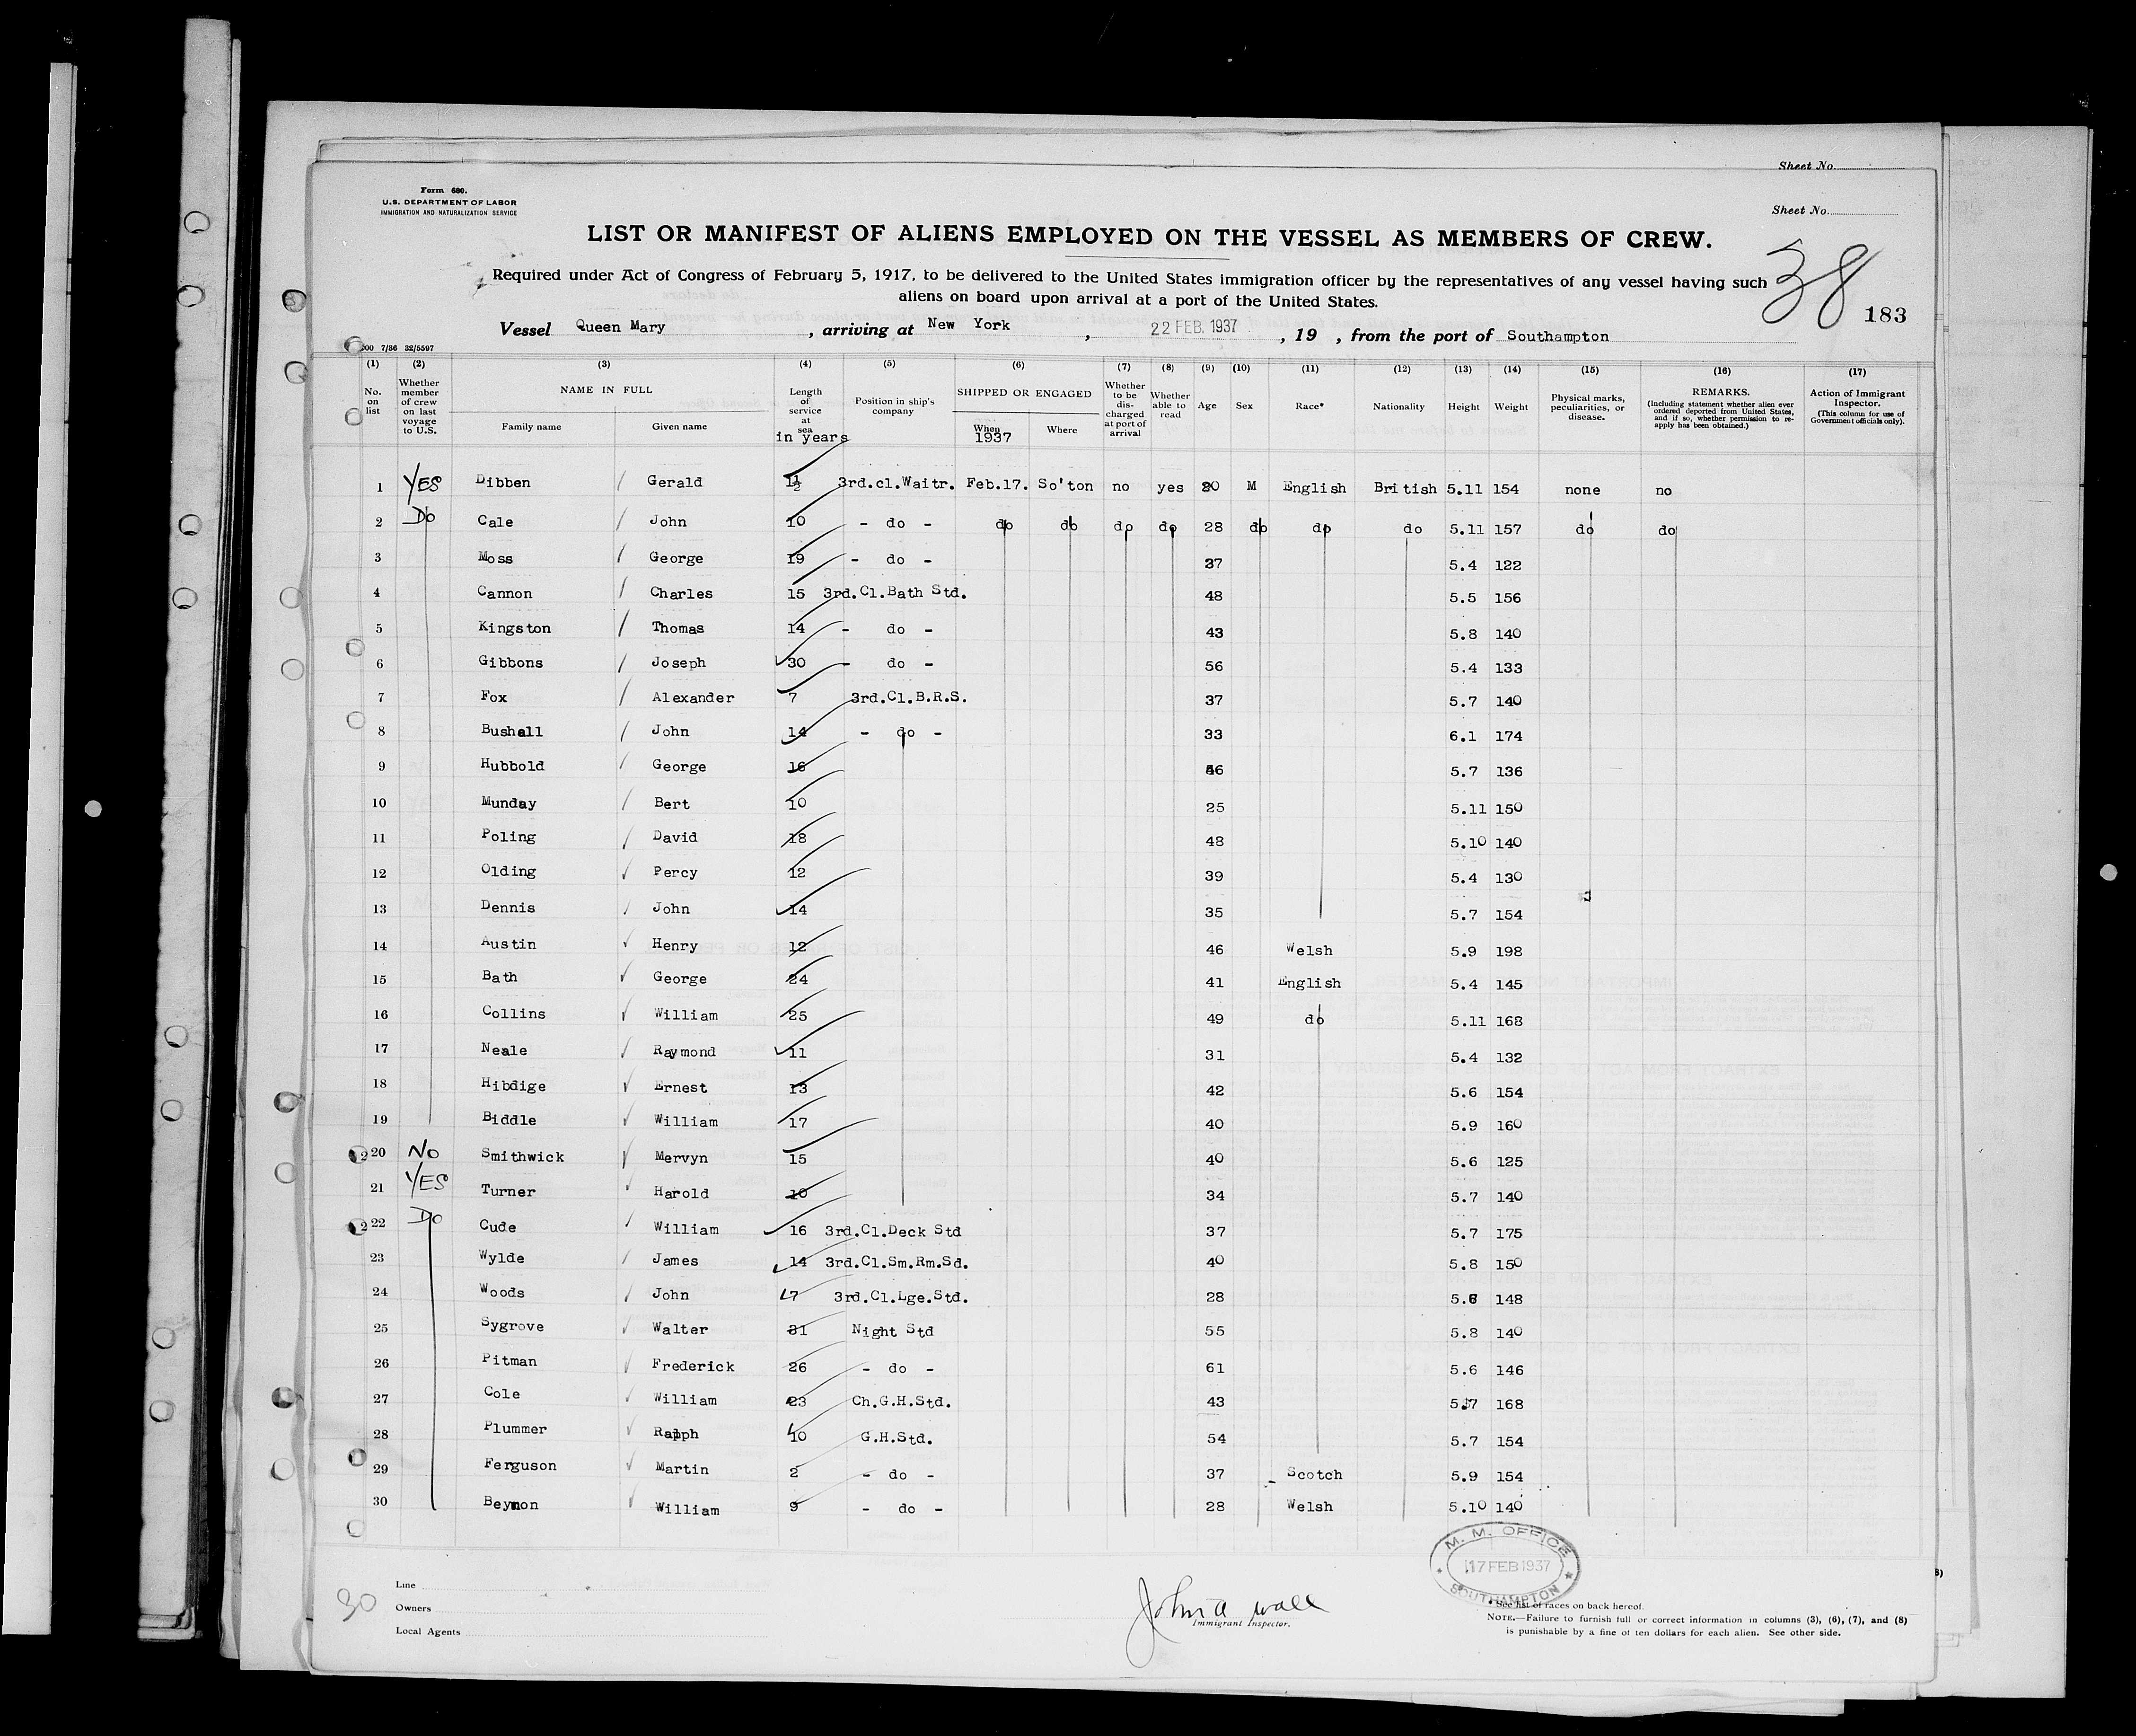 Sheet No.
Form 680.
U.S. DEPARTMENT OF LABOR
IMMIGRATION AND NATURALIZATION SERVICE
Sheet No.
LIST OR MANIFEST OF ALIENS EMPLOYED ON THE VESSEL AS MEMBERS OF CREW.
38
Required under Act of Congress of February 5, 1917, to be delivered to the United States immigration officer by the representatives of any vessel having such
aliens on board upon arrival at a port of the United States.
183
Vessel Queen Mary , arriving at New York , 22 FEB. 1937 , 19 , from the port of Southampton
000 7/36 32/5597
(1) (2) (3) (4) (5) (6) (7) (8) (9) (10) (11) (12) (13) (14) (15) (16) (17)
No. on list
Whether member of crew on last voyage to U.S.
NAME IN FULL
Family name Given name
Length of service at sea
in years
Position in ship's company
SHIPPED OR ENGAGED
When Where
1937
Whether to be discharged at port of arrival
Whether able to read
Age Sex Race* Nationality Height Weight
Physical marks, peculiarities, or disease.
REMARKS.
(Including statement whether alien ever ordered deported from United States, and if so, whether permission to reapply has been obtained.)
Action of Immigrant Inspector.
(This column for use of Government officials only).
1 YES Dibben Gerald 1½ 3rd.cl.Waitr. Feb.17. So'ton no yes 20 M English British 5.11 154 none no
2 Do Cale John 10 - do - do do do do 28 do do do 5.11 157 do do
3 Moss George 19 - do - 37 5.4 122
4 Cannon Charles 15 3rd.Cl.Bath Std. 48 5.5 156
5 Kingston Thomas 14 - do - 43 5.8 140
6 Gibbons Joseph 30 - do - 56 5.4 133
7 Fox Alexander 7 3rd.Cl.B.R.S. 37 5.7 140
8 Bushell John 14 - do - 33 6.1 174
9 Hubbold George 16 5.7 136
10 Munday Bert 10 25 5.11 150
11 Poling David 18 48 5.10 140
12 Olding Percy 12 39 5.4 130
13 Dennis John 14 35 5.7 154
14 Austin Henry 12 46 Welsh 5.9 198
15 Bath George 24 41 English 5.4 145
16 Collins William 25 49 do 5.11 168
17 Neale Raymond 11 31 5.4 132
18 Hibdige Ernest 13 42 5.6 154
19 Biddle William 17 40 5.9 160
2 20 No Smithwick Mervyn 15 40 5.6 125
21 YES Turner Harold 10 34 5.7 140
2 22 Do Cude William 16 3rd.Cl.Deck Std 37 5.7 175
23 Wylde James 14 3rd.Cl.Sm.Rm.Sd. 40 5.8 150
24 Woods John 7 3rd.Cl.Lge.Std. 28 148
25 Sygrove Walter 31 Night Std 55 5.8 140
26 Pitman Frederick 26 - do - 61 5.6 146
27 Cole William 23 Ch.G.H.Std. 43 5.7 168
28 Plummer Ralph 10 G.H.Std. 54 5.7 154
29 Ferguson Martin 2 - do - 37 Scotch 5.9 154
30 Beynon William 9 - do - 28 Welsh 5.10 140
M. M. OFFICE
17 FEB 1937
SOUTHAMPTON
30
Line
Owners
Local Agents
John A Wall
Immigrant Inspector.
* See list of races on back hereof.
NOTE.—Failure to furnish full or correct information in columns (3), (6), (7), and (8)
is punishable by a fine of ten dollars for each alien. See other side.